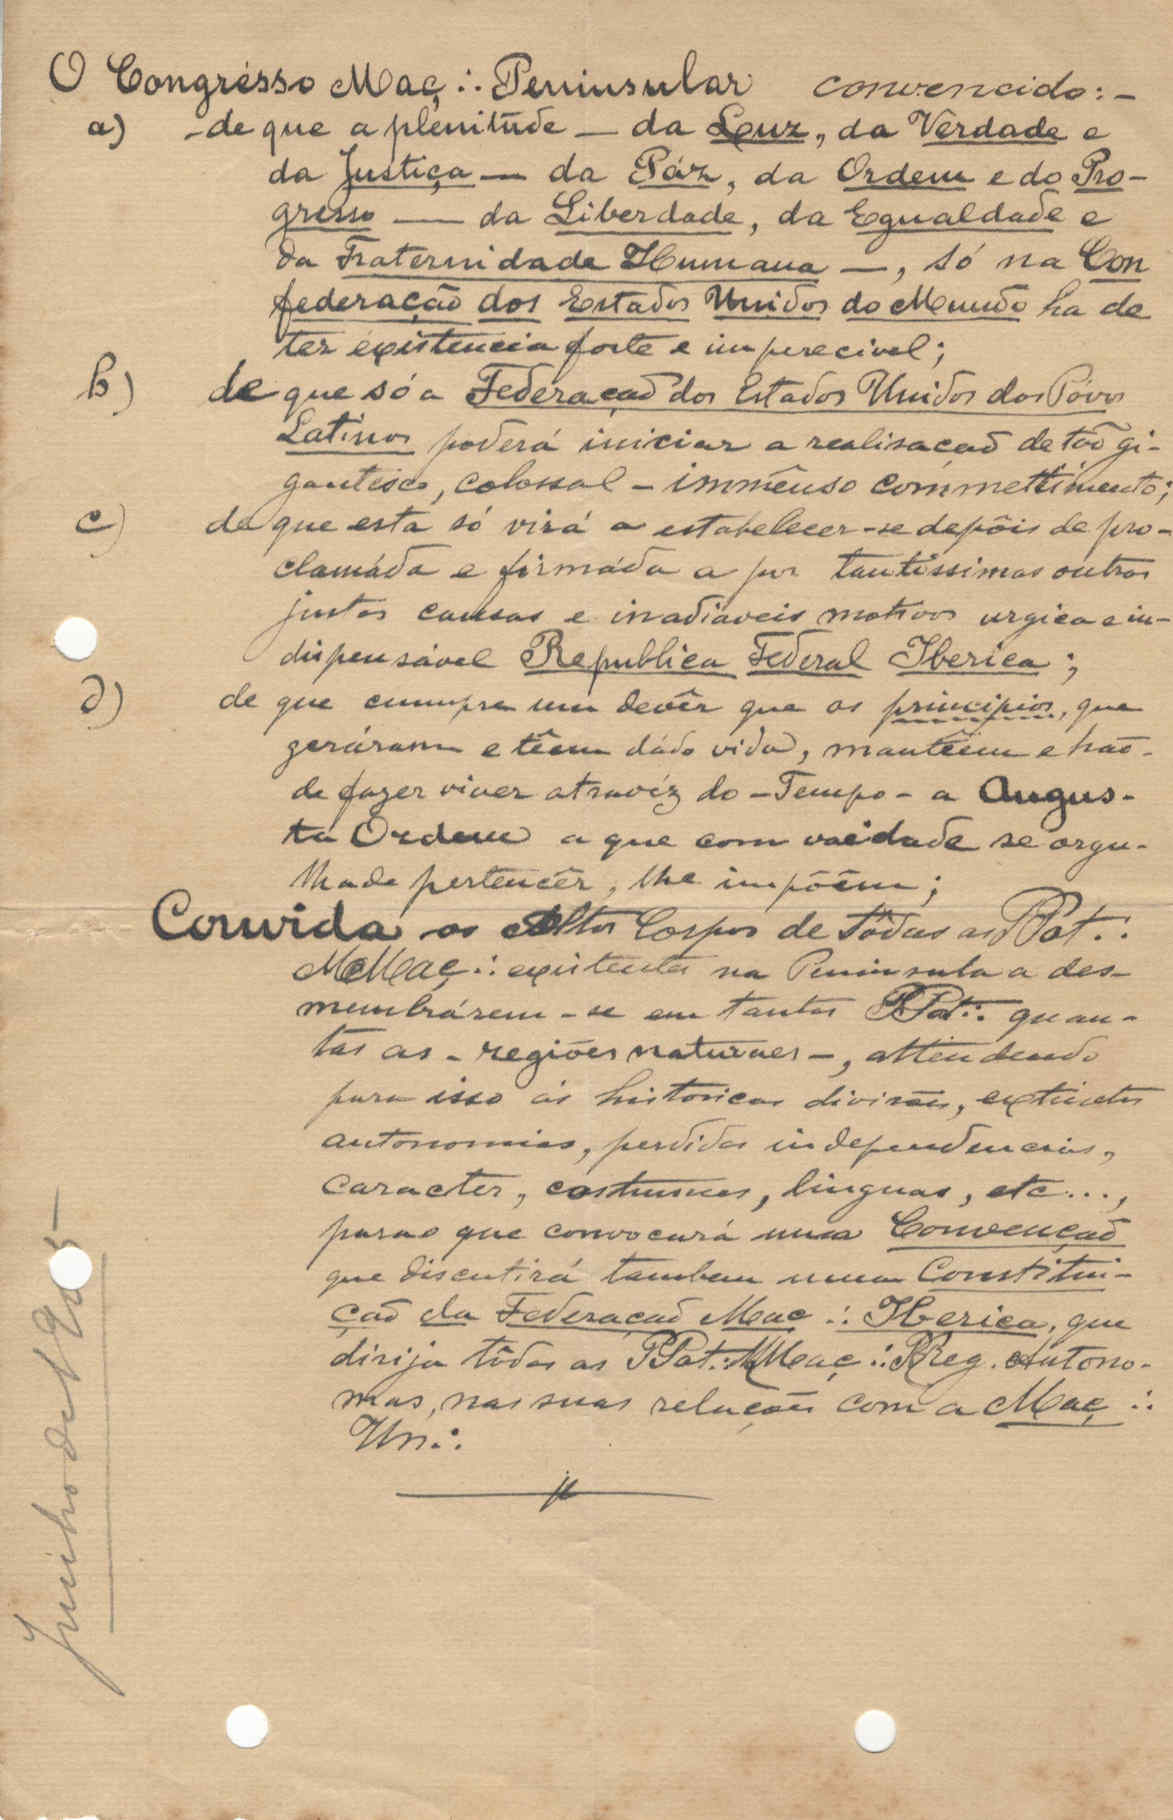 O Congrésso Maç∴ Peninsular convencido:—
a) -de que a plenitude — da Luz, da Verdade e
da Justiça — da Páz, da Ordem e do Pro-
gresso — da Liberdade, da Egualdade e
da Fraternidade Humana —, só na Con
federação dos Estados Unidos do Mundo ha de
ter existencia forte e imperecivel;
b) de que só a Federação dos Estados Unidos dos Póvos
Latinos poderá iniciar a realisação de tão gi-
gantesco, colossal - immênso commettimento;
c) de que esta só virá a estabelecer-se depôis de pro-
clamáda e firmáda a por tantissimas outras
justas causas e inadiaveis motivos urgica e in-
dispensável Republica Federal Iberica;
d) de que cumpre um devêr que os principios, que
geráram e têem dádo vida, mantêem e hão-
de fazer viver atravéz do - Tempo - a Augus-
ta Ordem a que com vaidade se orgu-
lha de pertencêr, lhe impõem;
Convida os Altos Corpos de tôdas as PPot∴
MMaç∴ existentes na Peninsula a des-
membrárem-se em tantas PPot∴ quan-
tas as - regiões naturaes -, attendendo
para isso ás historicas divisões, extinctas
autonomias, perdidas independencias,
caracter, costumes, linguas, etc...,
para o que convocará uma Convenção
que discutirá tambem uma Constitui-
ção da Federação Maç∴ Iberica, que
dirija tôdas as PPot∴ MMaç∴ RReg. Autono-
mas, nas suas relações com a Maç∴
Un∴
Junho de 1905